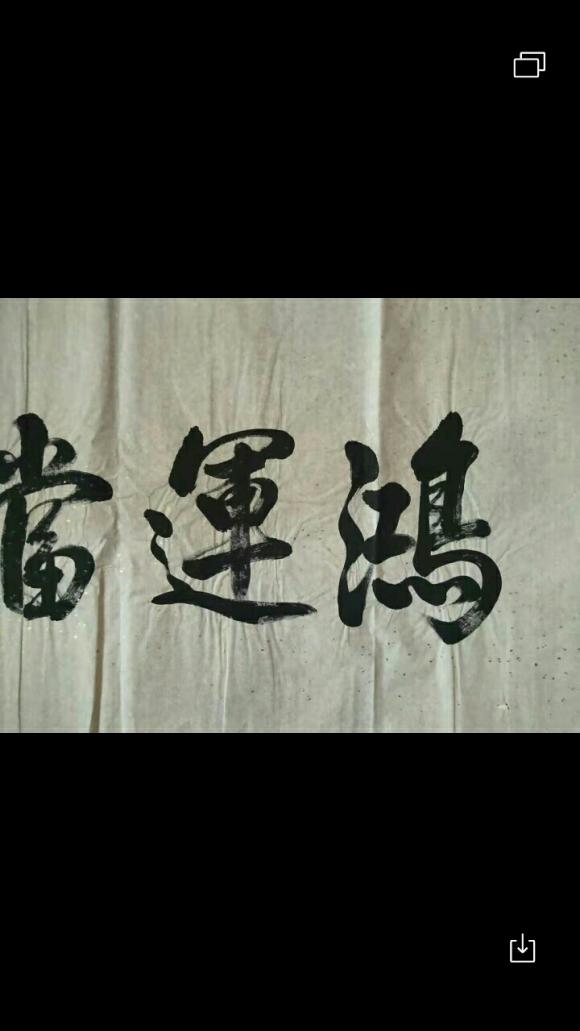 鴻運當